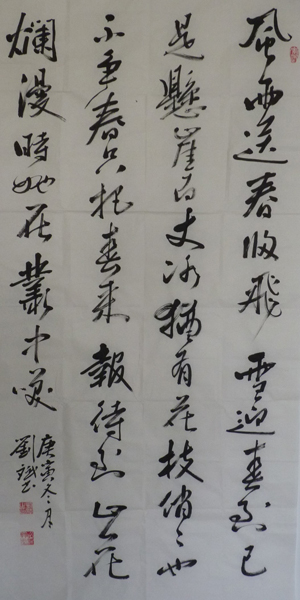 風雨送春歸飛雪迎春到已
是懸崖百丈冰猶有花枝俏〻也
不爭春只把春來報待到山花
爛漫時她在叢中笑
庚寅冬月
劉